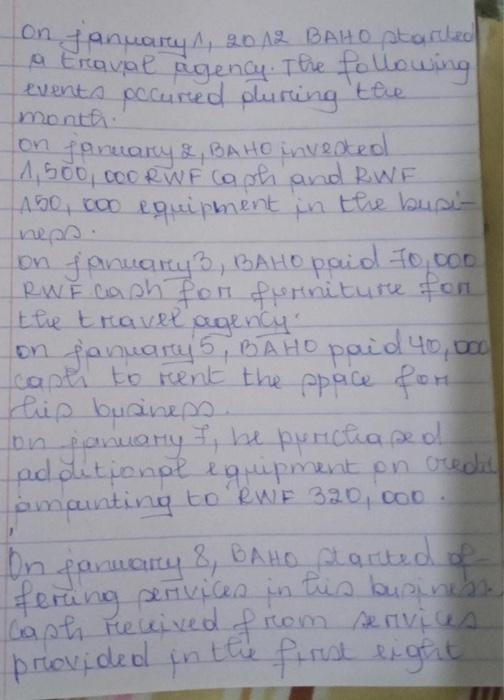 On january 1, 2012 BAHO started
a traval agency. The following
events occured during the
month.
on january 2, BAHO invested
1,500,000 RWF cash and RWF
150,000 equipment in the busi-
ness.
on january 3, BAHO paid 70,000
RWF cash for furniture for
the travel agency.
on january 5, BAHO paid 40,000
cash to rent the space for
his business.
on january 7, he purchased
additional equipment on credit
amounting to RWF 320,000.
On january 8, BAHO started of-
fering services in his business.
Cash received from services
provided in the first eight